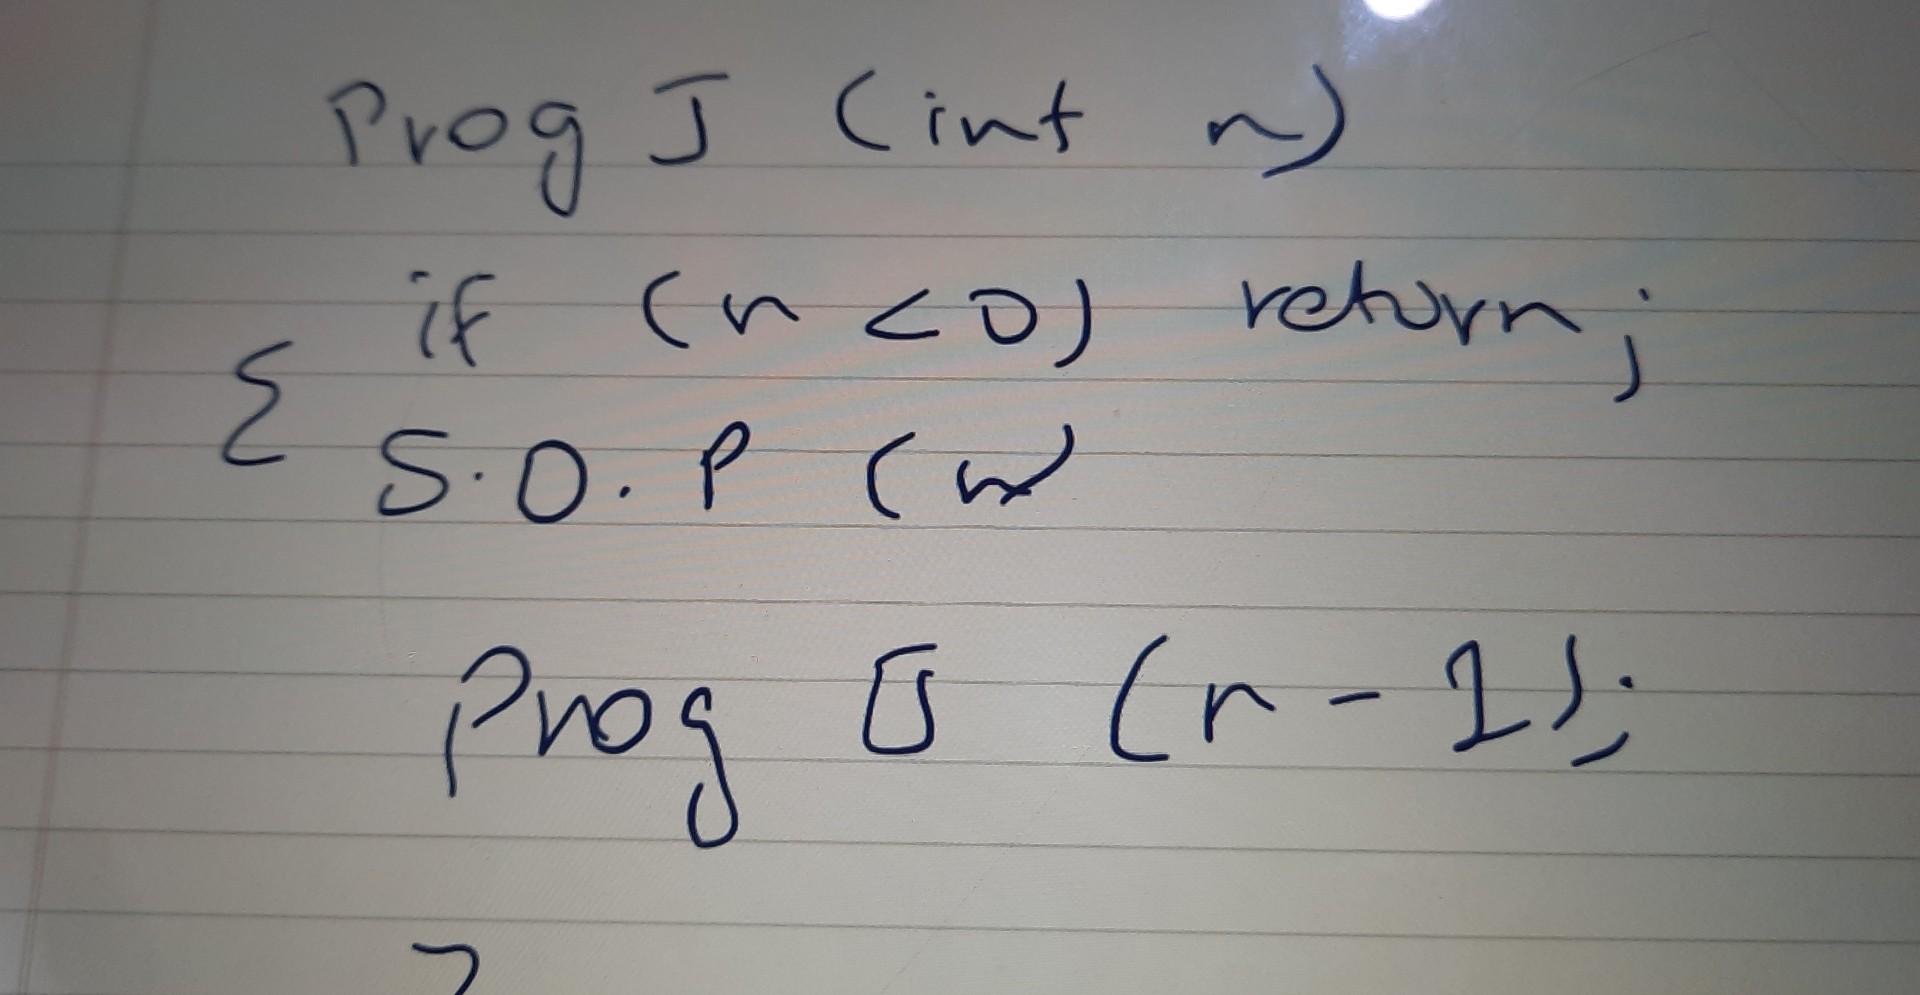 Prog J (int n)
{ if (n <0) return;
S.O.P (n)
Prog J (n-1);
}